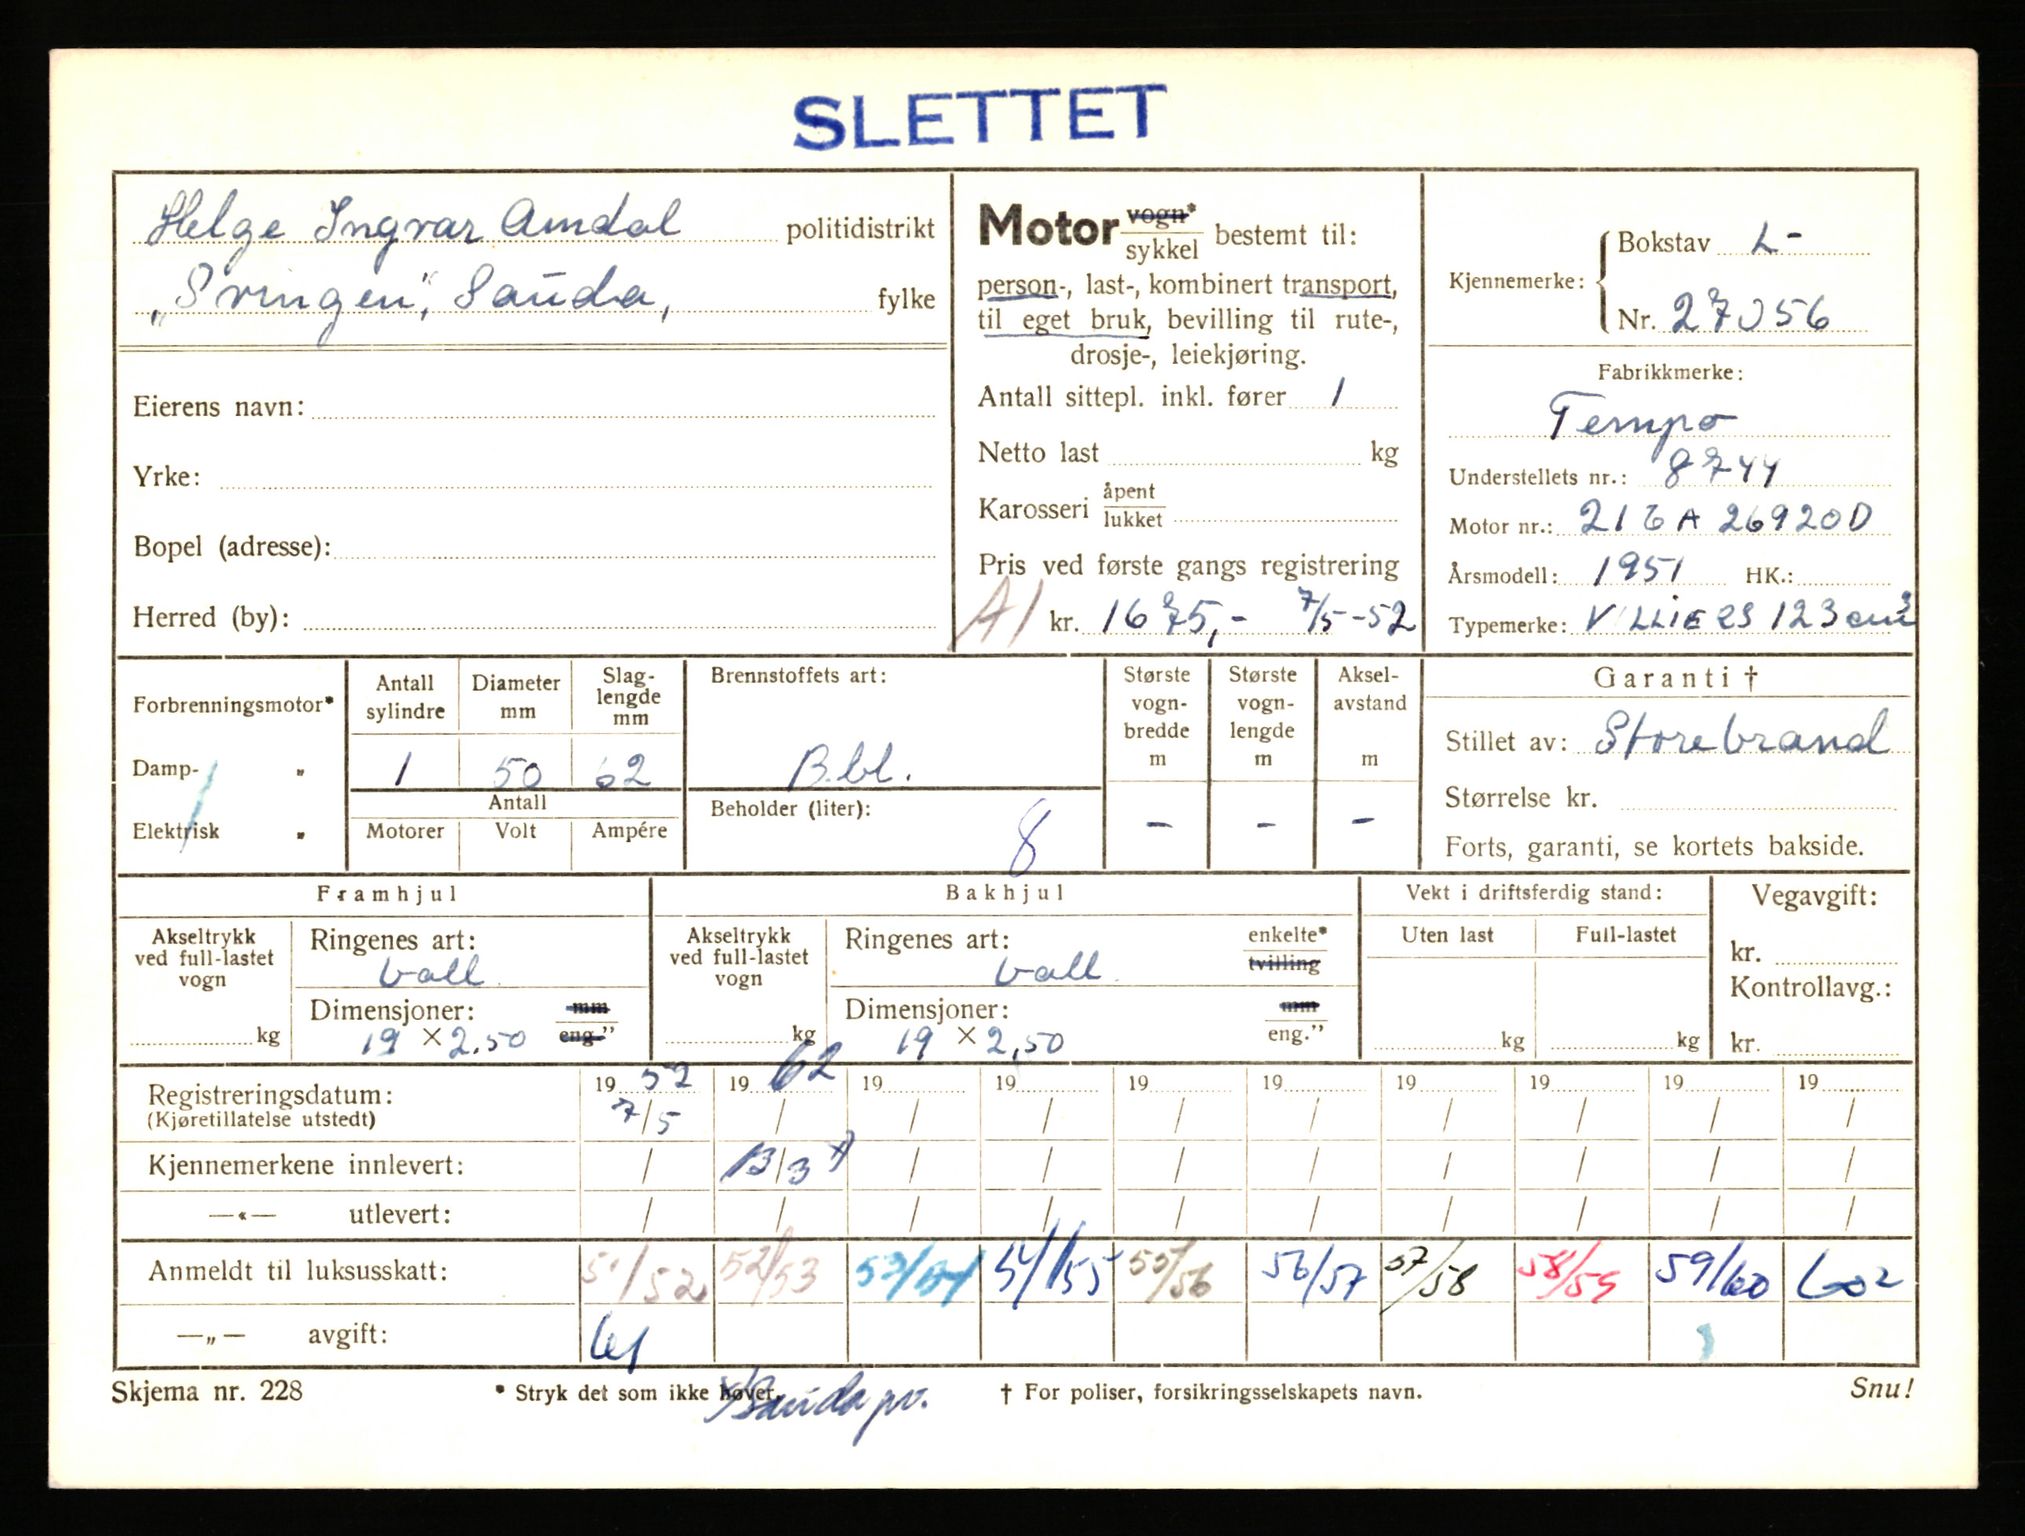 SLETTET
Helge Ingvar Amdal politidistrikt
„Svingen", Sauda, fylke
Eierens navn:
Yrke:
Bopel (adresse):
Herred (by):
Motor vogn* / sykkel bestemt til:
person-, last-, kombinert transport,
til eget bruk, bevilling til rute-,
drosje-, leiekjøring.
Antall sittepl. inkl. fører 1
Netto last kg
Karosseri åpent / lukket
Pris ved første gangs registrering
A1 kr. 1675,- 7/5-52
Kjennemerke: Bokstav L-
Nr. 27056
Fabrikkmerke:
Tempo
Understellets nr.: 8744
Motor nr.: 216A 26920D
Årsmodell: 1951 HK.:
Typemerke: VILLIERS 123 cm³
Forbrenningsmotor*
Damp- „
Elektrisk „
Antall sylindre
Diameter mm
Slag-lengde mm
1 50 62
Antall
Motorer Volt Ampére
Brennstoffets art:
B.bl.
Beholder (liter):
8
Største vogn-bredde m
Største vogn-lengde m
Aksel-avstand m
- - -
Garanti †
Stillet av: Storebrand
Størrelse kr.
Forts, garanti, se kortets bakside.
Framhjul
Akseltrykk ved full-lastet vogn
kg
Ringenes art:
ball
Dimensjoner: mm / eng."
19 × 2.50
Bakhjul
Akseltrykk ved full-lastet vogn
kg
Ringenes art: enkelte* / tvilling
ball
Dimensjoner: mm / eng."
19 × 2,50
Vekt i driftsferdig stand:
Uten last Full-lastet
kg kg
Vegavgift:
kr.
Kontrollavg.:
kr.
Registreringsdatum: 19 52 19 62 19 19 19 19 19 19 19 19
(Kjøretillatelse utstedt) 7/5 / / / / / / / / /
Kjennemerkene innlevert: / 13/3 x) / / / / / / / /
—«— utlevert: / / / / / / / / / /
Anmeldt til luksusskatt: 51/52 52/53 53/54 54/55 55/56 56/57 57/58 58/59 59/60 602
—„— avgift: 61
Skjema nr. 228 * Stryk det som ikke høver. † For poliser, forsikringsselskapets navn. Snu!
x) Sauda pv.